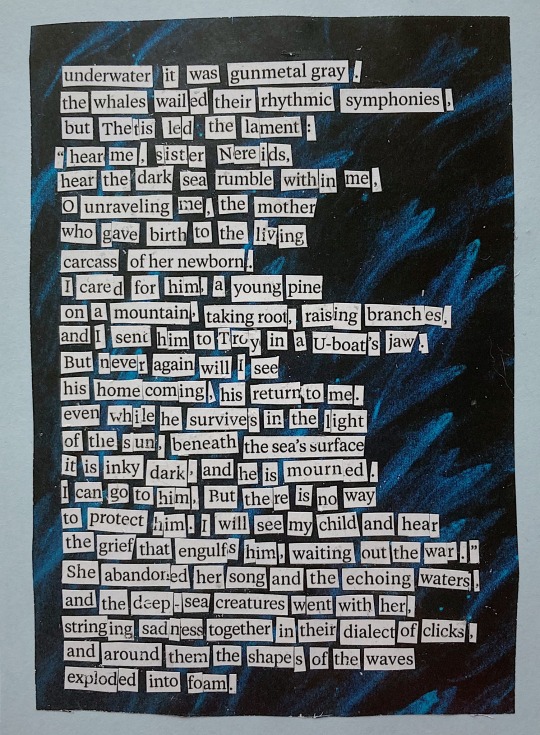 underwater it was gunmetal gray.
the whales wailed their rhythmic symphonies,
but Thetis led the lament:
"hear me, sister Nereids,
hear the dark sea rumble within me,
O unraveling me, the mother
who gave birth to the living
carcass of her newborn.
I cared for him, a young pine
on a mountain, taking root, raising branches,
and I sent him to Troy in a U-boat's jaw.
But never again will I see
his home coming, his return to me.
even while he survives in the light
of the sun, beneath the sea's surface
it is inky dark, and he is mourned.
I can go to him, But there is no way
to protect him. I will see my child and hear
the grief that engulfs him, waiting out the war."
She abandoned her song and the echoing waters.
and the deep-sea creatures went with her,
stringing sadness together in their dialect of clicks,
and around them the shapes of the waves
exploded into foam.